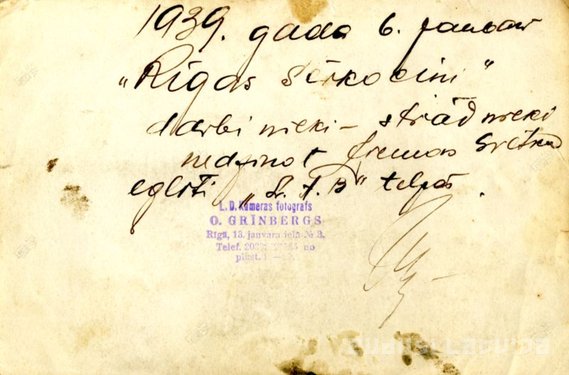 1939. gada 6. janvarī
„Rīgas Sērkociņi"
darbinieki – strādnieki
nedzinot Ziemas Svētku
eglīti „L. T. B" telpās.
L. D. Kameras fotografs
O. GRĪNBERGS
Rīgā, 13. janvara ielā № 3.
Telef. no
plkst.